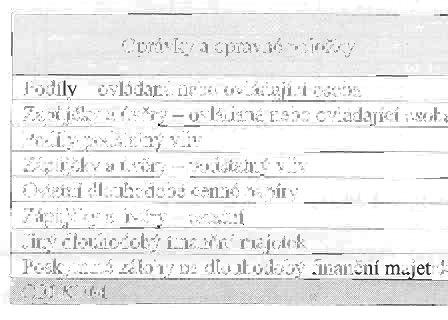 Oprávky a opravné položky
Podíly – ovládaná nebo ovládající osoba
Zápůjčky a úvěry – ovládaná nebo ovládající osoba
Podíly podstatný vliv
Zápůjčky a úvěry – podstatný vliv
Ostatní dlouhodobé cenné papíry
Zápůjčky a úvěry – ostatní
Jiný dlouhodobý finanční majetek
Poskytnuté zálohy na dlouhodobý finanční majet
CELKEM